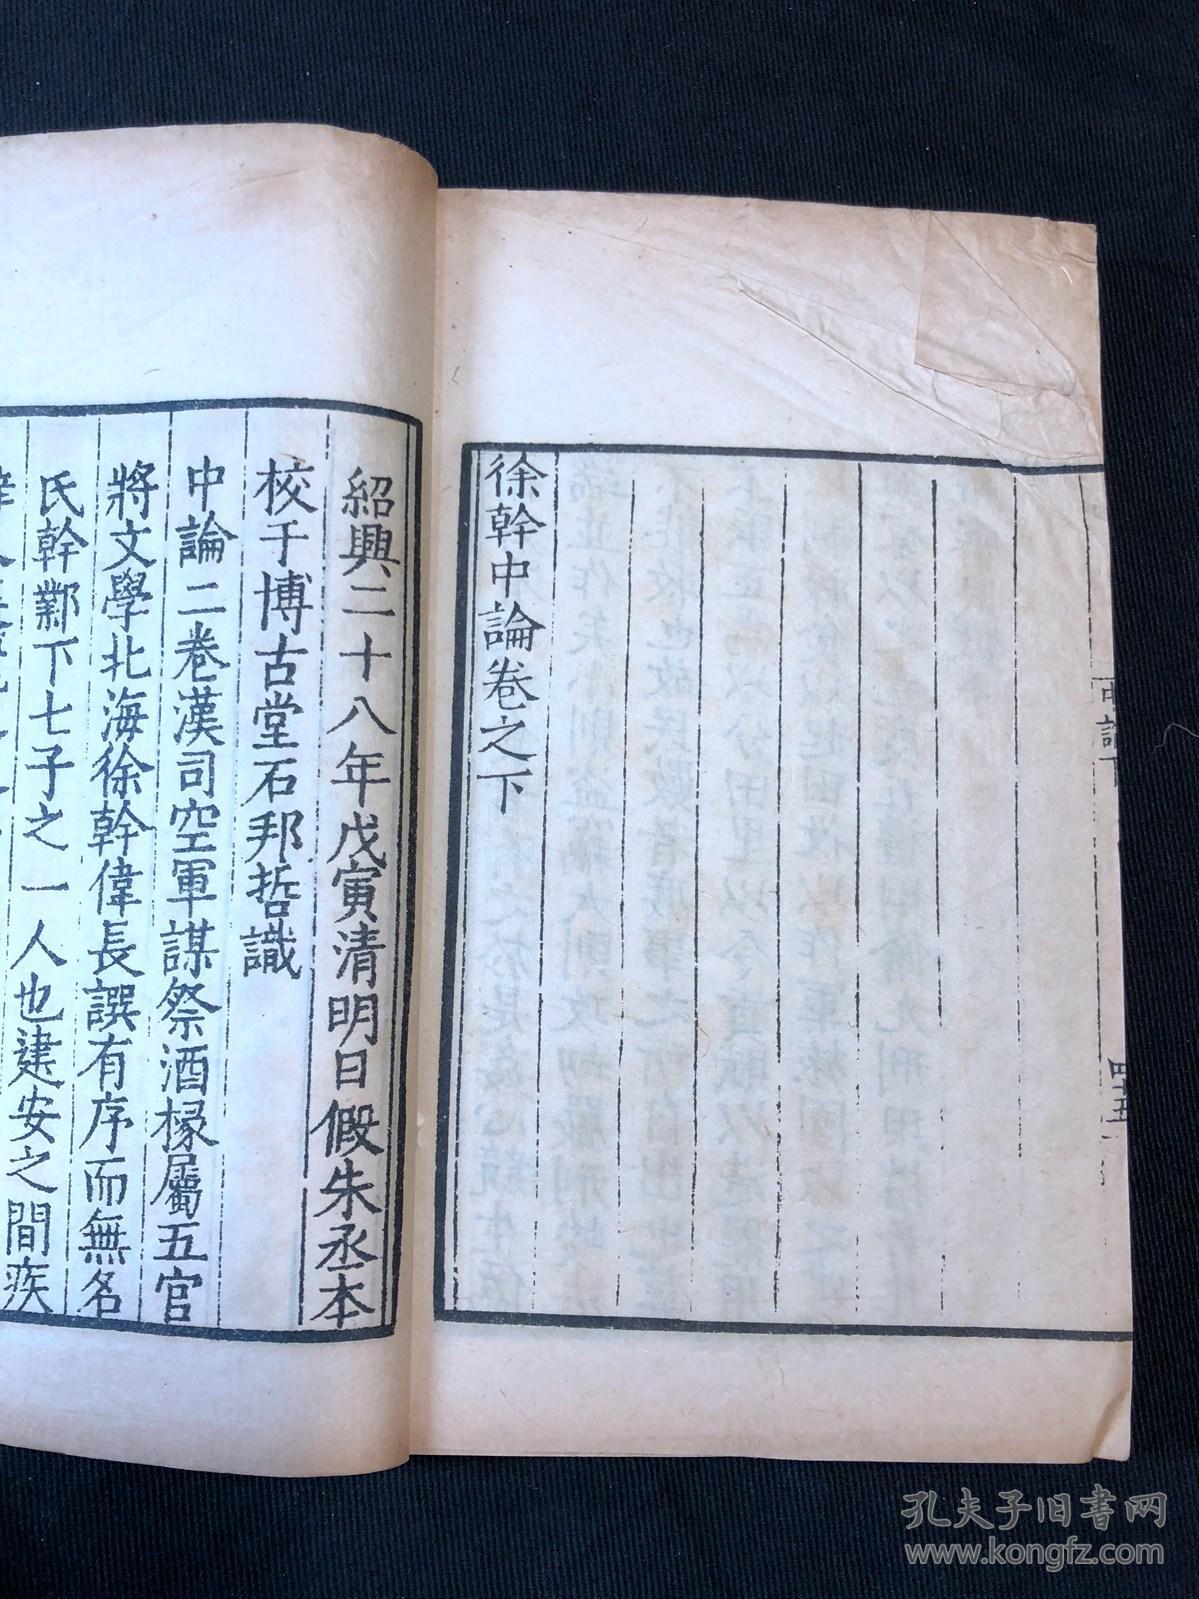 徐幹中論卷之下
紹興二十八年戊寅清明日假朱丞本
校于博古堂石邦哲識
中論二卷漢司空軍謀祭酒掾屬五官
將文學北海徐幹偉長譔有序而無名
氏幹鄴下七子之一人也建安之間疾
四十五
孔夫子旧书网
www.kongfz.com